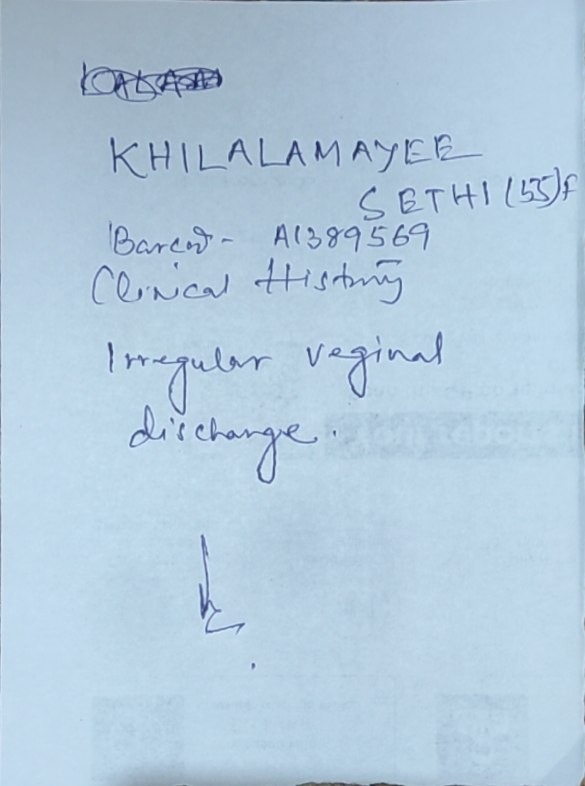 KHILALAMAYEE
SETHI (55)F
Barcod - A1389569
Clinical History
Irregular veginal
discharge.